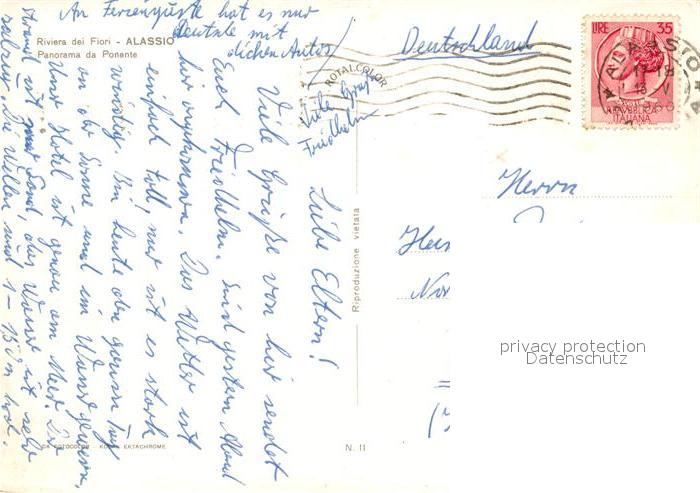 An Ferienziele hat es nur
deutsche mit
Riviera dei Fiori - ALASSIO
Panorama da Ponente
Deutschland
ROTALCOLOR
Viele Grüße
Friedhelm
LIRE 35
ITALIANA
ALASSIO
Liebe Eltern!
Viele Grüße von hier sendet
Euch Friedhelm. Sind gestern Abend
hier angekommen. Das Wetter ist
einfach toll, nur ist es stark
windig. Bin heute den ganzen Tag
an der Sonne und im Wasser gewesen.
Unser Hotel ist genau am Meer. Der
Strand ist nur Sand, das Wasser ist sehr
salzig. Die Wellen sind 1 - 1,50 m hoch.
Riproduzione vietata
Herrn
privacy protection
Datenschutz
EKTACHROME
N. 11